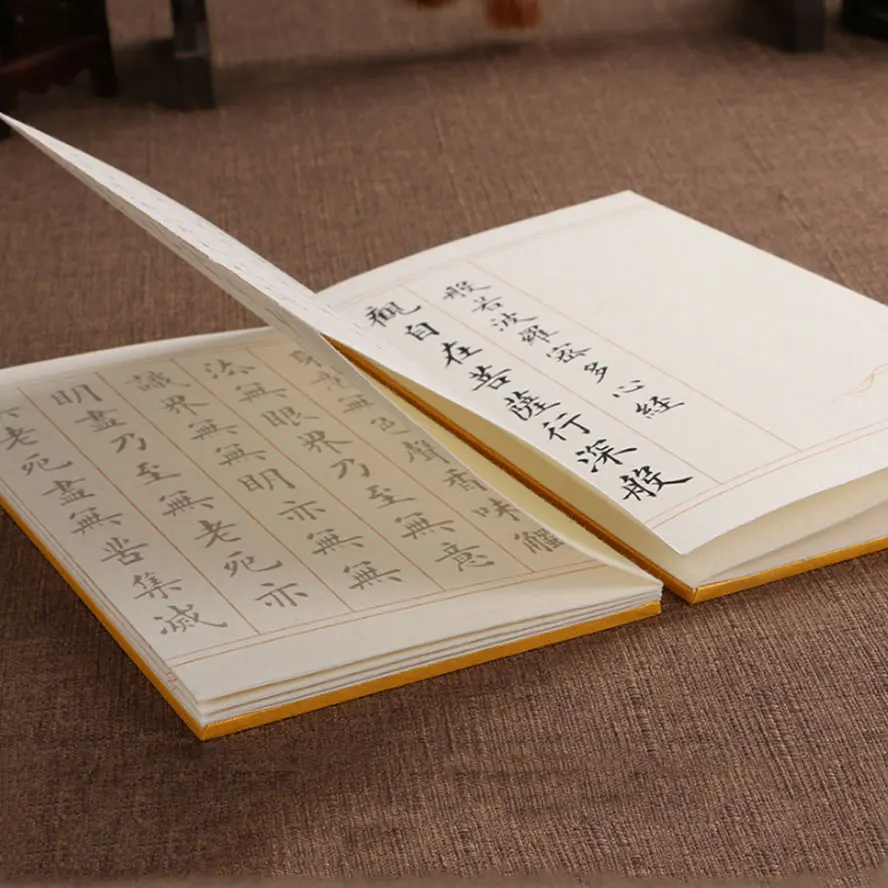 般若波羅蜜多心經
觀自在菩薩行深般
身意無色聲香味觸
法無眼界乃至無意
識界無無明亦無無
明盡乃至無老死亦
老死盡無苦集滅